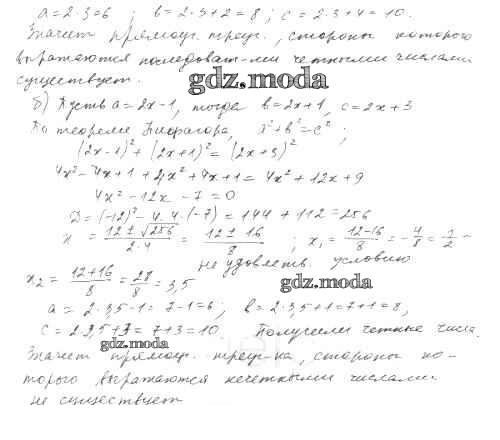 a=2·3=6 ; b=2·3+2=8 ; c=2·3+4=10.
Значит прямоуг. треуг., стороны которого
выражаются последоват-ми четными числами
существует.
gdz.moda
б) Пусть a=2x-1, тогда b=2x+1, c=2x+3
По теореме Пифагора, a²+b²=c² ;
(2x-1)²+(2x+1)²=(2x+3)²
4x²-4x+1+4x²+4x+1=4x²+12x+9
4x²-12x-7=0
D=(-12)²-4·4·(-7)=144+112=256
x = (12±√256)/(2·4) = (12±16)/8 ; x₁ = (12-16)/8 = -4/8 = 1/2 -
не удовлетв. условию
x₂ = (12+16)/8 = 28/8 = 3,5
gdz.moda
a=2·3,5-1=7-1=6 ; b=2·3,5+1=7+1=8,
c=2·3,5+3=7+3=10 Получили четные числа.
gdz.moda
Значит прямоуг. треуг-ка, стороны ко-
торого выражаются нечетными числами
не существует